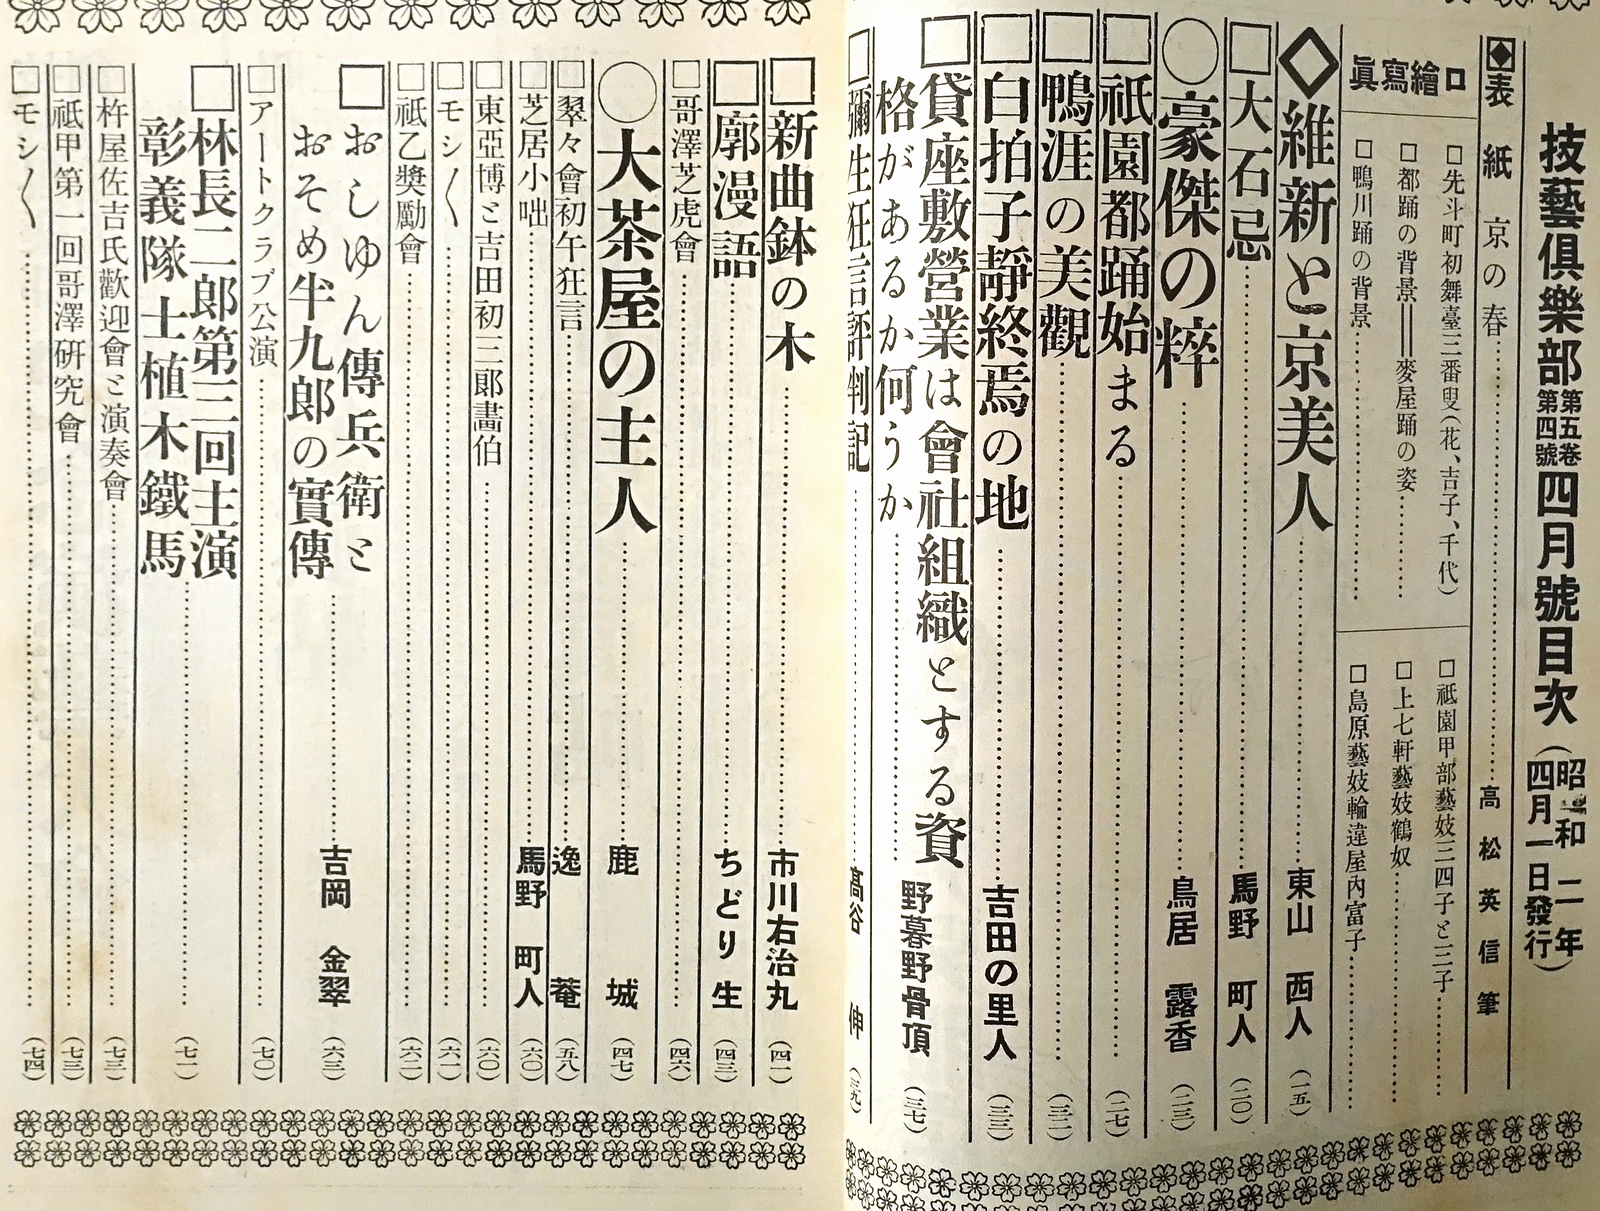 技藝倶樂部 第五卷第四號 四月號目次 (昭和二年四月一日發行)
表紙 京の春 高松英信筆
口繪寫眞
□先斗町初舞臺三番叟(花、吉子、千代)
□都踊の背景‖麥屋踊の姿
□鴨川踊の背景
□祗園甲部藝妓三四子と三子
□上七軒藝妓鶴奴
□島原藝妓輪違屋內富子
◇維新と京美人 東山西人 (一五)
□大石忌 馬野町人 (二〇)
○豪傑の粹 鳥居露香 (二三)
□祇園都踊始まる (二七)
□鴨涯の美觀 (三二)
□白拍子靜終焉の地 吉田の里人 (三三)
□貸座敷營業は會社組織とする資
格があるか何うか 野暮野骨頂 (三七)
□彌生狂言評判記 高谷伸 (三九)
□新曲鉢の木 市川右治丸 (四一)
□廓漫語 ちどり生 (四三)
□哥澤芝虎會 (四六)
○大茶屋の主人 鹿城 (四七)
□翠々會初午狂言 逸菴 (五八)
□芝居小咄 馬野町人 (六〇)
□東亞博と吉田初三郞畵伯 (六〇)
□モシ〱 (六一)
□祇乙奬勵會 (六二)
□おしゆん傳兵衛と
おそめ半九郎の實傳 吉岡金翠 (六三)
□アートクラブ公演 (七〇)
□林長二郎第三回主演
彰義隊士植木鐵馬 (七一)
□杵屋佐吉氏歡迎會と演奏會 (七三)
□祇甲第一回哥澤研究會 (七三)
□モシ〱 (七四)